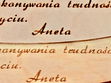 konywania trudnośc
yciu.
Aneta
konywania trudnośc
yciu.
Aneta